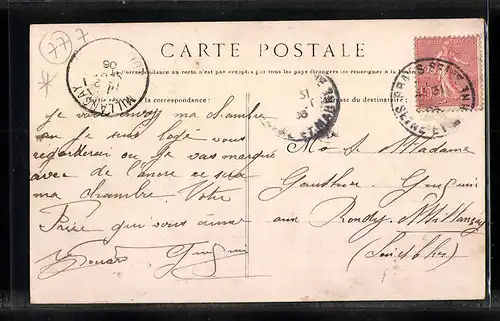 777
CARTE POSTALE
La correspondance au recto n'est pas acceptée par tous les pays étrangers (se renseigner à la Poste)
Partie réservée à la correspondance:
du destinataire:
MILLANÇAY
06
SEINE ET MARNE
Je vous envoy ma chambre
ou je suis logé vous
regarderai ou je vas marqué
avec de l'ancre ce sera
ma chambre. Votre
frère qui vous aime
Edouard
Mr et Madame
Gauthier
aux Rondy Millançay
(Loir et Cher)